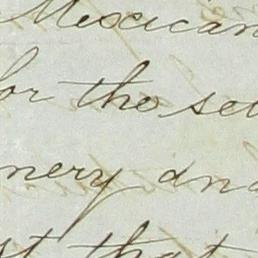 Mexican
for the set
nery and
st that